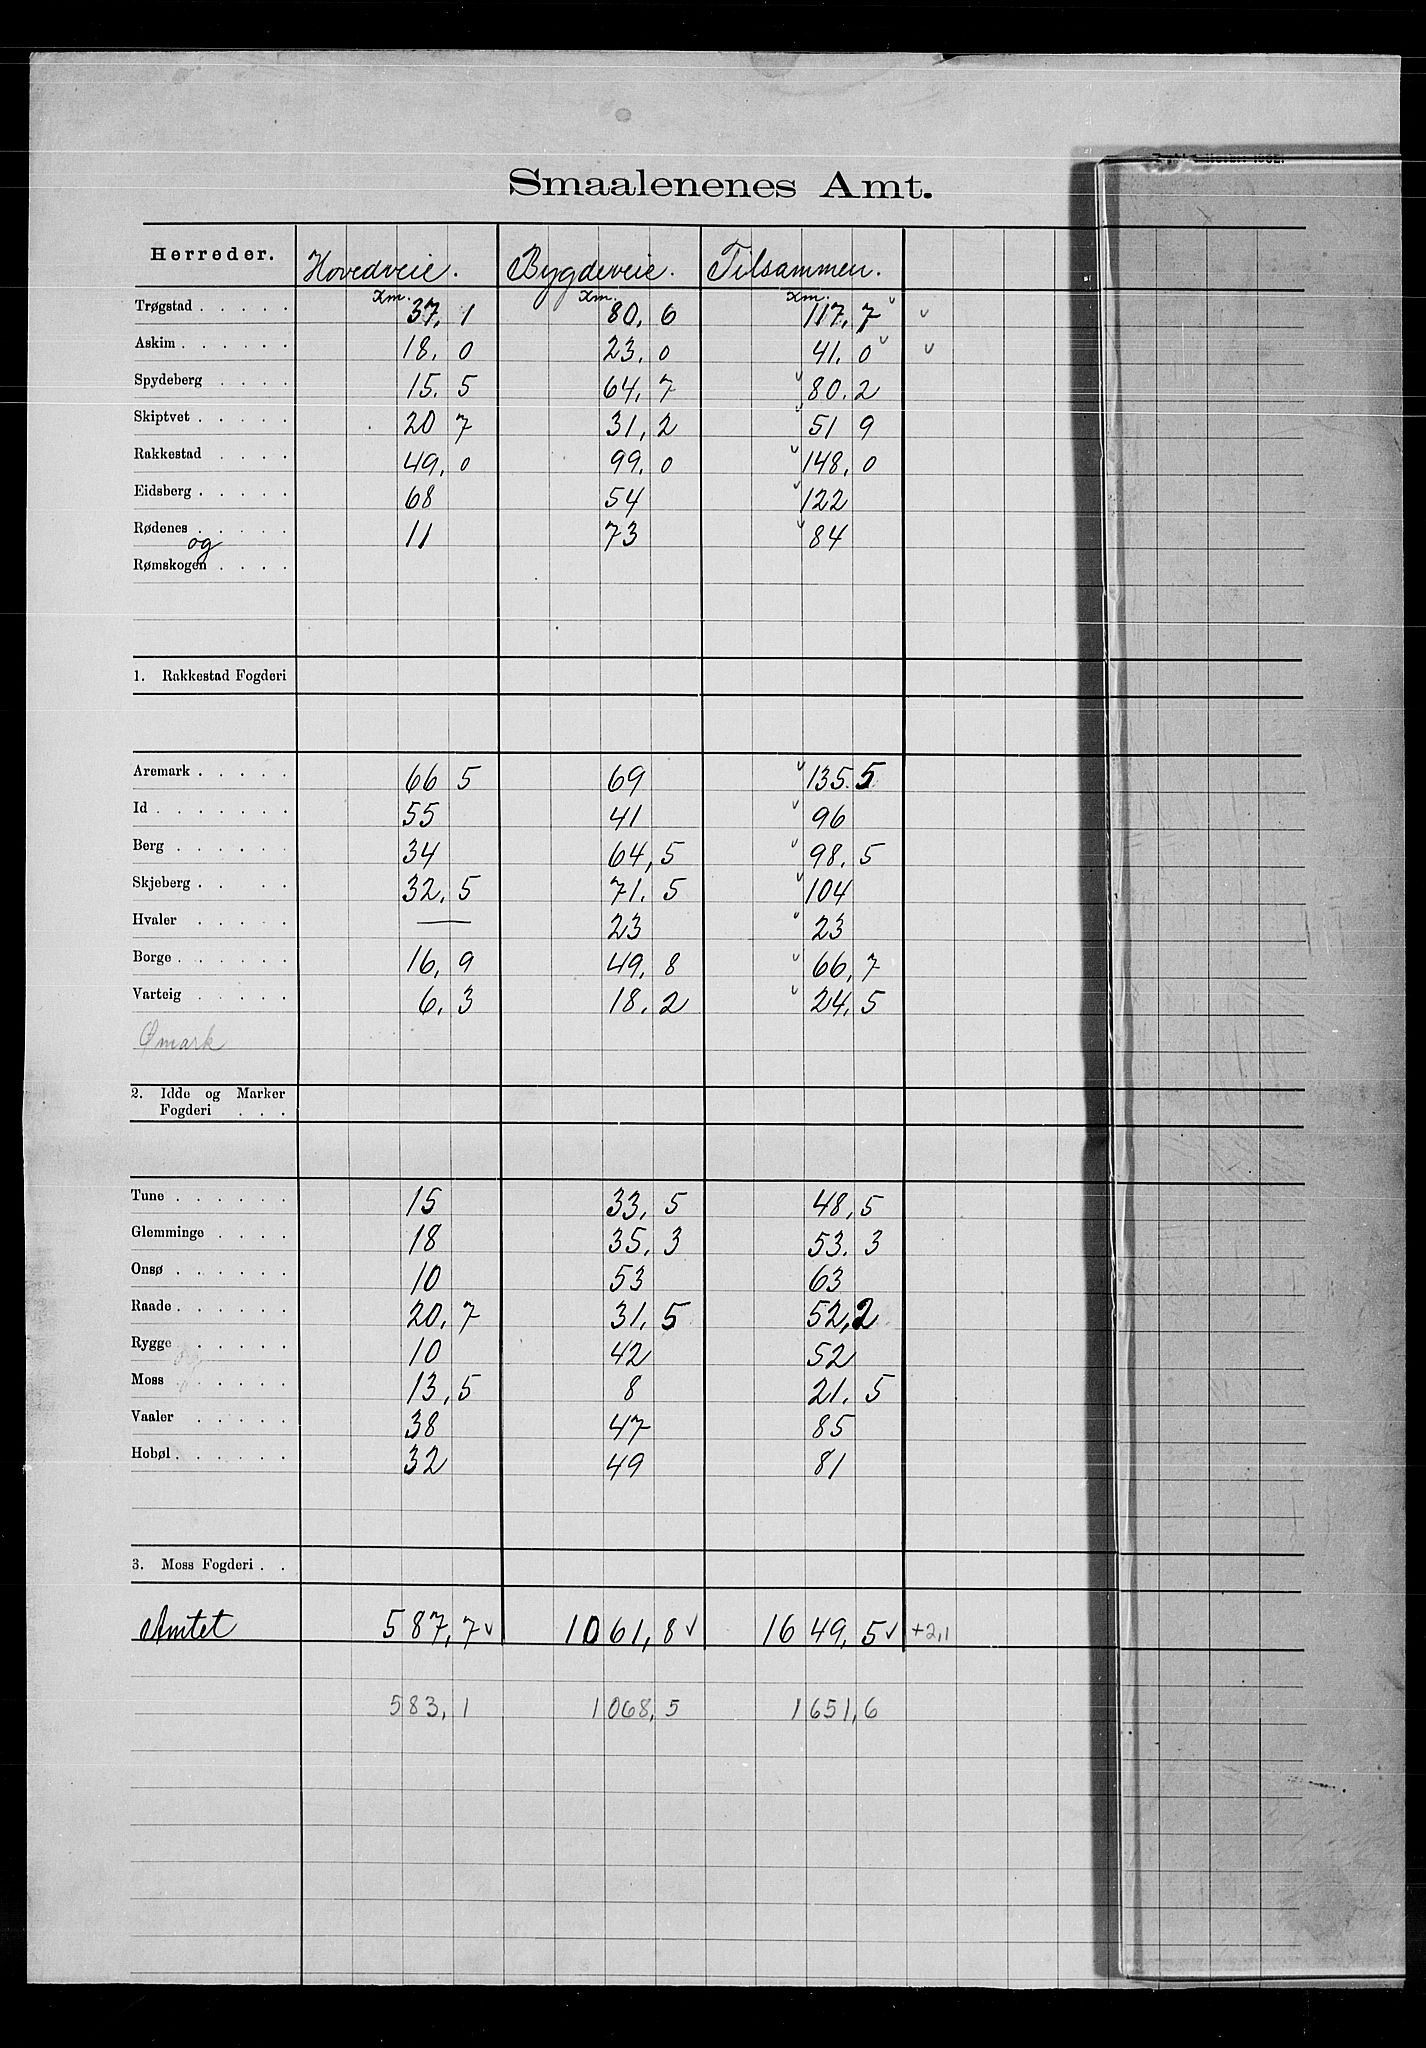 Smaalenenes Amt.
Herreder. Hovedveie. Bygdeveie. Tilsammen.
Km. Km. Km.
Trøgstad . . . . . 37,1 80,6 117,7
Askim . . . . . . 18,0 23,0 41,0
Spydeberg . . . . 15,5 64,7 80,2
Skiptvet . . . . . 20 7 31,2 51 9
Rakkestad . . . . 49,0 99,0 148,0
Eidsberg . . . . . 68 54 122
Rødenes . . . . . 11 73 84
og
Rømskogen . . . .
1. Rakkestad Fogderi
Aremark . . . . . 66 5 69 135.5
Id . . . . . . . 55 41 96
Berg . . . . . . 34 64,5 98,5
Skjeberg . . . . . 32,5 71,5 104
Hvaler . . . . . — 23 23
Borge . . . . . . 16,9 49,8 66,7
Varteig . . . . . 6,3 18,2 24,5
Ømark
2. Idde og Marker
Fogderi . . .
Tune . . . . . . 15 33,5 48,5
Glemminge . . . . 18 35,3 53,3
Onsø . . . . . . 10 53 63
Raade . . . . . . 20,7 31,5 52,2
Rygge . . . . . 10 42 52
Moss . . . . . 13,5 8 21,5
Vaaler . . . . . 38 47 85
Hobøl . . . . . . 32 49 81
3. Moss Fogderi . .
Amtet 587,7 1061,8 1649,5 +2,1
583,1 1068,5 1651,6